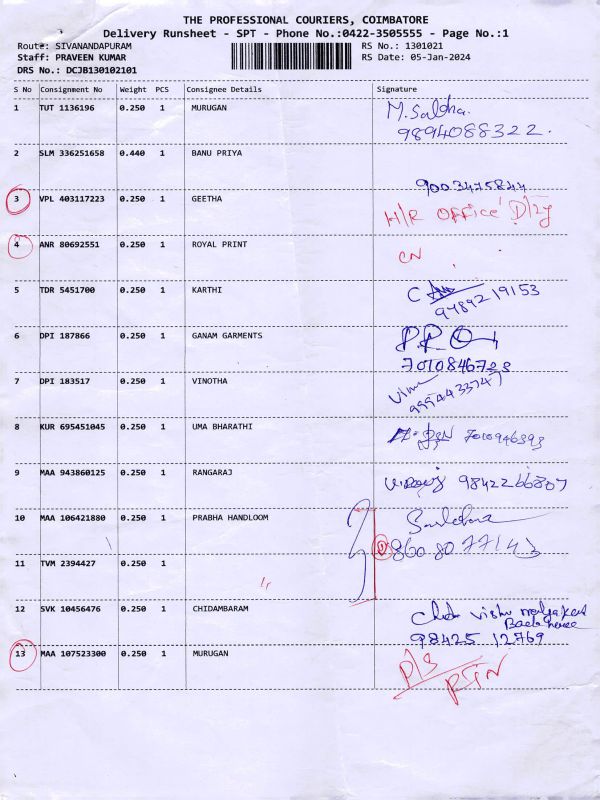 THE PROFESSIONAL COURIERS, COIMBATORE
Delivery Runsheet - SPT - Phone No.:0422-3505555 - Page No.:1
Route: SIVANANDAPURAM RS No.: 1301021
Staff: PRAVEEN KUMAR RS Date: 05-Jan-2024
DRS No.: DCJB130102101
S No Consignment No Weight PCS Consignee Details Signature
1 TUT 1136196 0.250 1 MURUGAN M.Sabha.
9894088322.
2 SLM 336251658 0.440 1 BANU PRIYA
9003475844
3 VPL 403117223 0.250 1 GEETHA H/R OFFICE D/2y
4 ANR 80692551 0.250 1 ROYAL PRINT CN
5 TDR 5451700 0.250 1 KARTHI C
9489219153
6 DPI 187866 0.250 1 GANAM GARMENTS P.P.
7010846723
7 DPI 183517 0.250 1 VINOTHA Vinu
9994433747
8 KUR 695451045 0.250 1 UMA BHARATHI 7010946393
9 MAA 943860125 0.250 1 RANGARAJ 9842266807
10 MAA 106421880 0.250 1 PRABHA HANDLOOM
860 80 77143
11 TVM 2394427 0.250 1
12 SVK 10456476 0.250 1 CHIDAMBARAM
98425 12769
13 MAA 107523300 0.250 1 MURUGAN P/S
RTN